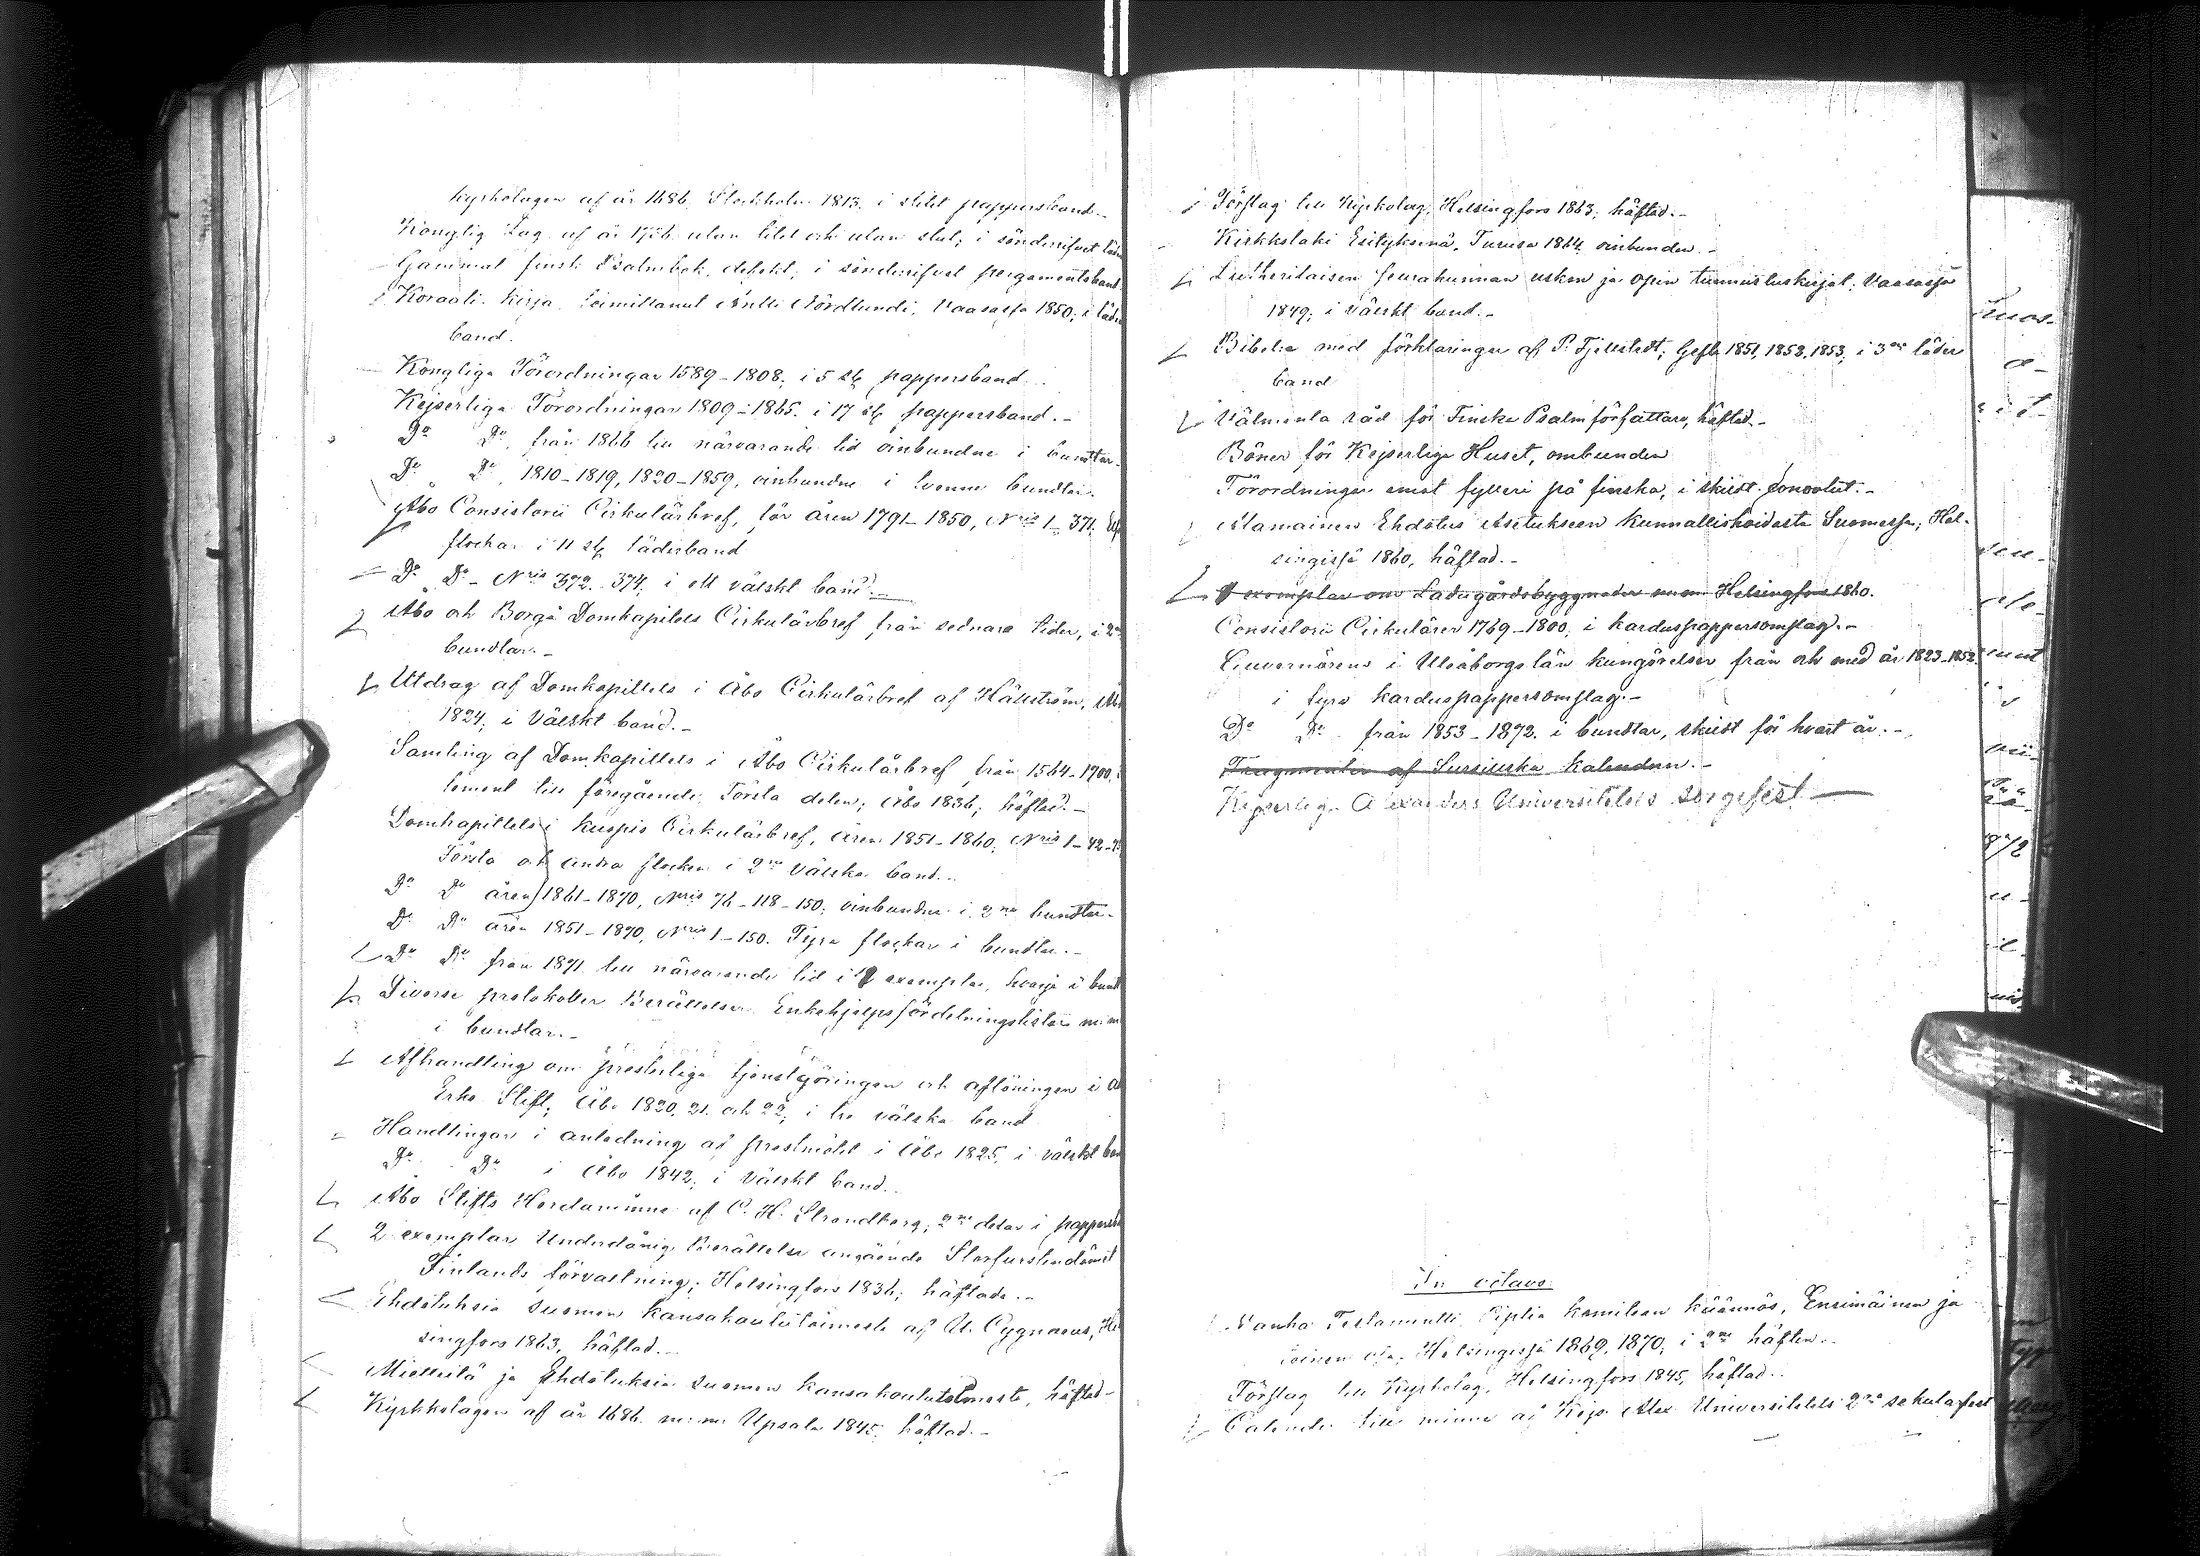 Kyrkolagen af år 1686. Stockholm 1813. i slitet pappersband.-
Konglig Lag af år 1736 utan titel och utan slut; i sönderrifvet läder
Gammal finsk Psalmbok, defekt; i sönderrifvet pergamentsband
Koraali-kirja toimittanut Antti Nordlund, Vaasassa 1850; i läder
band.
Kongliga Förordningar 1589-1808; i 5 st. pappersband.
Kejserliga Förordningar 1809-1865. i 17 st. pappersband.-
Do Do från 1866 till närvarande tid oinbundne i bundtar.
Do Do 1810-1819, 1820-1859, oinbundne i tvenne bundtar.
Åbo Consistorii Cirkulärbref, för åren 1791-1850, Nris 1-371.
flockar i 11 st. läderband
Do Do- Nris 372-374; i ett välskt band.-
Åbo och Borgå Domkapitels Cirkulärbref från sednare tider, i 2ne
bundtar.-
Utdrag af Domkapitlets i Åbo Cirkulärbref af Hällström, Åbo
1824; i välskt band.-
Samling af Domkapitlets i Åbo Cirkulärbref från 1564-1700,
lement till föregående. Första delen; Åbo 1836; häftad.-
Domkapitlets i Kuopio Cirkulärbref, åren 1851-1860, Nris 1-42-
Första och andra flocken i 2ne välska band.-
Do Do åren 1861-1870, Nris 76-118-150; oinbundna i 2ne bundtar.
Do Do åren 1851-1870, Nris 1-150. Fyra flockar i bundtar.-
Do Do från 1871 till närvarande tid i exemplar, hvarje i bundt
Diverse protokoller Berättelser Enkehjelpsfördelningslistor m:m
i bundtar.-
Afhandling om presterliga tjenstgöringen och aflöningen i Åbo
Erke Stift; Åbo 1820, 21 och 22; i tre välska band
Handlingar i anledning af prestmötet i Åbo 1825, i välskt band
Do Do i Åbo 1842; i välskt band.
Åbo Stifts Herdaminne af C. H. Strandberg; 2ne delar i pappers
2 exemplar Underdånig berättelse angående Storfurstendömet
Finlands förvaltning; Helsingfors 1836; häftade.-
Ehdotuksia Suomen kansakoulutoimesta af U. Cygnaeus, Hel
singfors 1863, häftad.-
Mietteitä ja Ehdotuksia Suomen kansakoulutoimesta, häftad-
Kyrkkolagen af år 1686. m:m: Upsala 1845; häftad.-
Förslag till Kyrkolag, Helsingfors 1863; häftad.-
Kirkkolaki Esityksenä, Turussa 1864. oinbunden.-
Lutherilaisen seurakunnan uskon ja opin tunnustuskirjat; Vaasassa
1849; i välskt band.-
Bibeln med förklaringar af P. Fjellstedt; Gefle 1851, 1852, 1853; i 3ne läder
band
Välmenta råd för Finska Psalmförfattare, häftad.-
Böner för Kejserliga Huset, ombunden
Förordningar emot fylleri på finska, i skildt konvolut.-
Alamainen Ehdotus Asetukseen Kunnallishoidosta Suomessa; Hel-
singissä 1860, häftad.-
exemplar om Ladugårdsbyggnader Helsingfors 1860.
Consistorii Cirkulärer 1769-1800; i karduspappersomslag.-
Guvernörens i Uleåborgs län kungörelser från och med år 1823-1852
i fyra karduspappersomslag.-
Do Do från 1853-1872. i bundtar, skildt för hvart år.-
Fragmenter af Kalendern.-
Kejserliga Alexanders Universitetets sorgefest-
In octavo.
Vanha Testamentti, Piplia komitean käännös, Ensimäinen ja
toinen osa. Helsingissä 1869, 1870; i 2ne häften.-
Förslag till Kyrkolag, Helsingfors 1845, häftad.-
Calender till minne af Kejs. Alex. Universitetets 2dra sekularfest